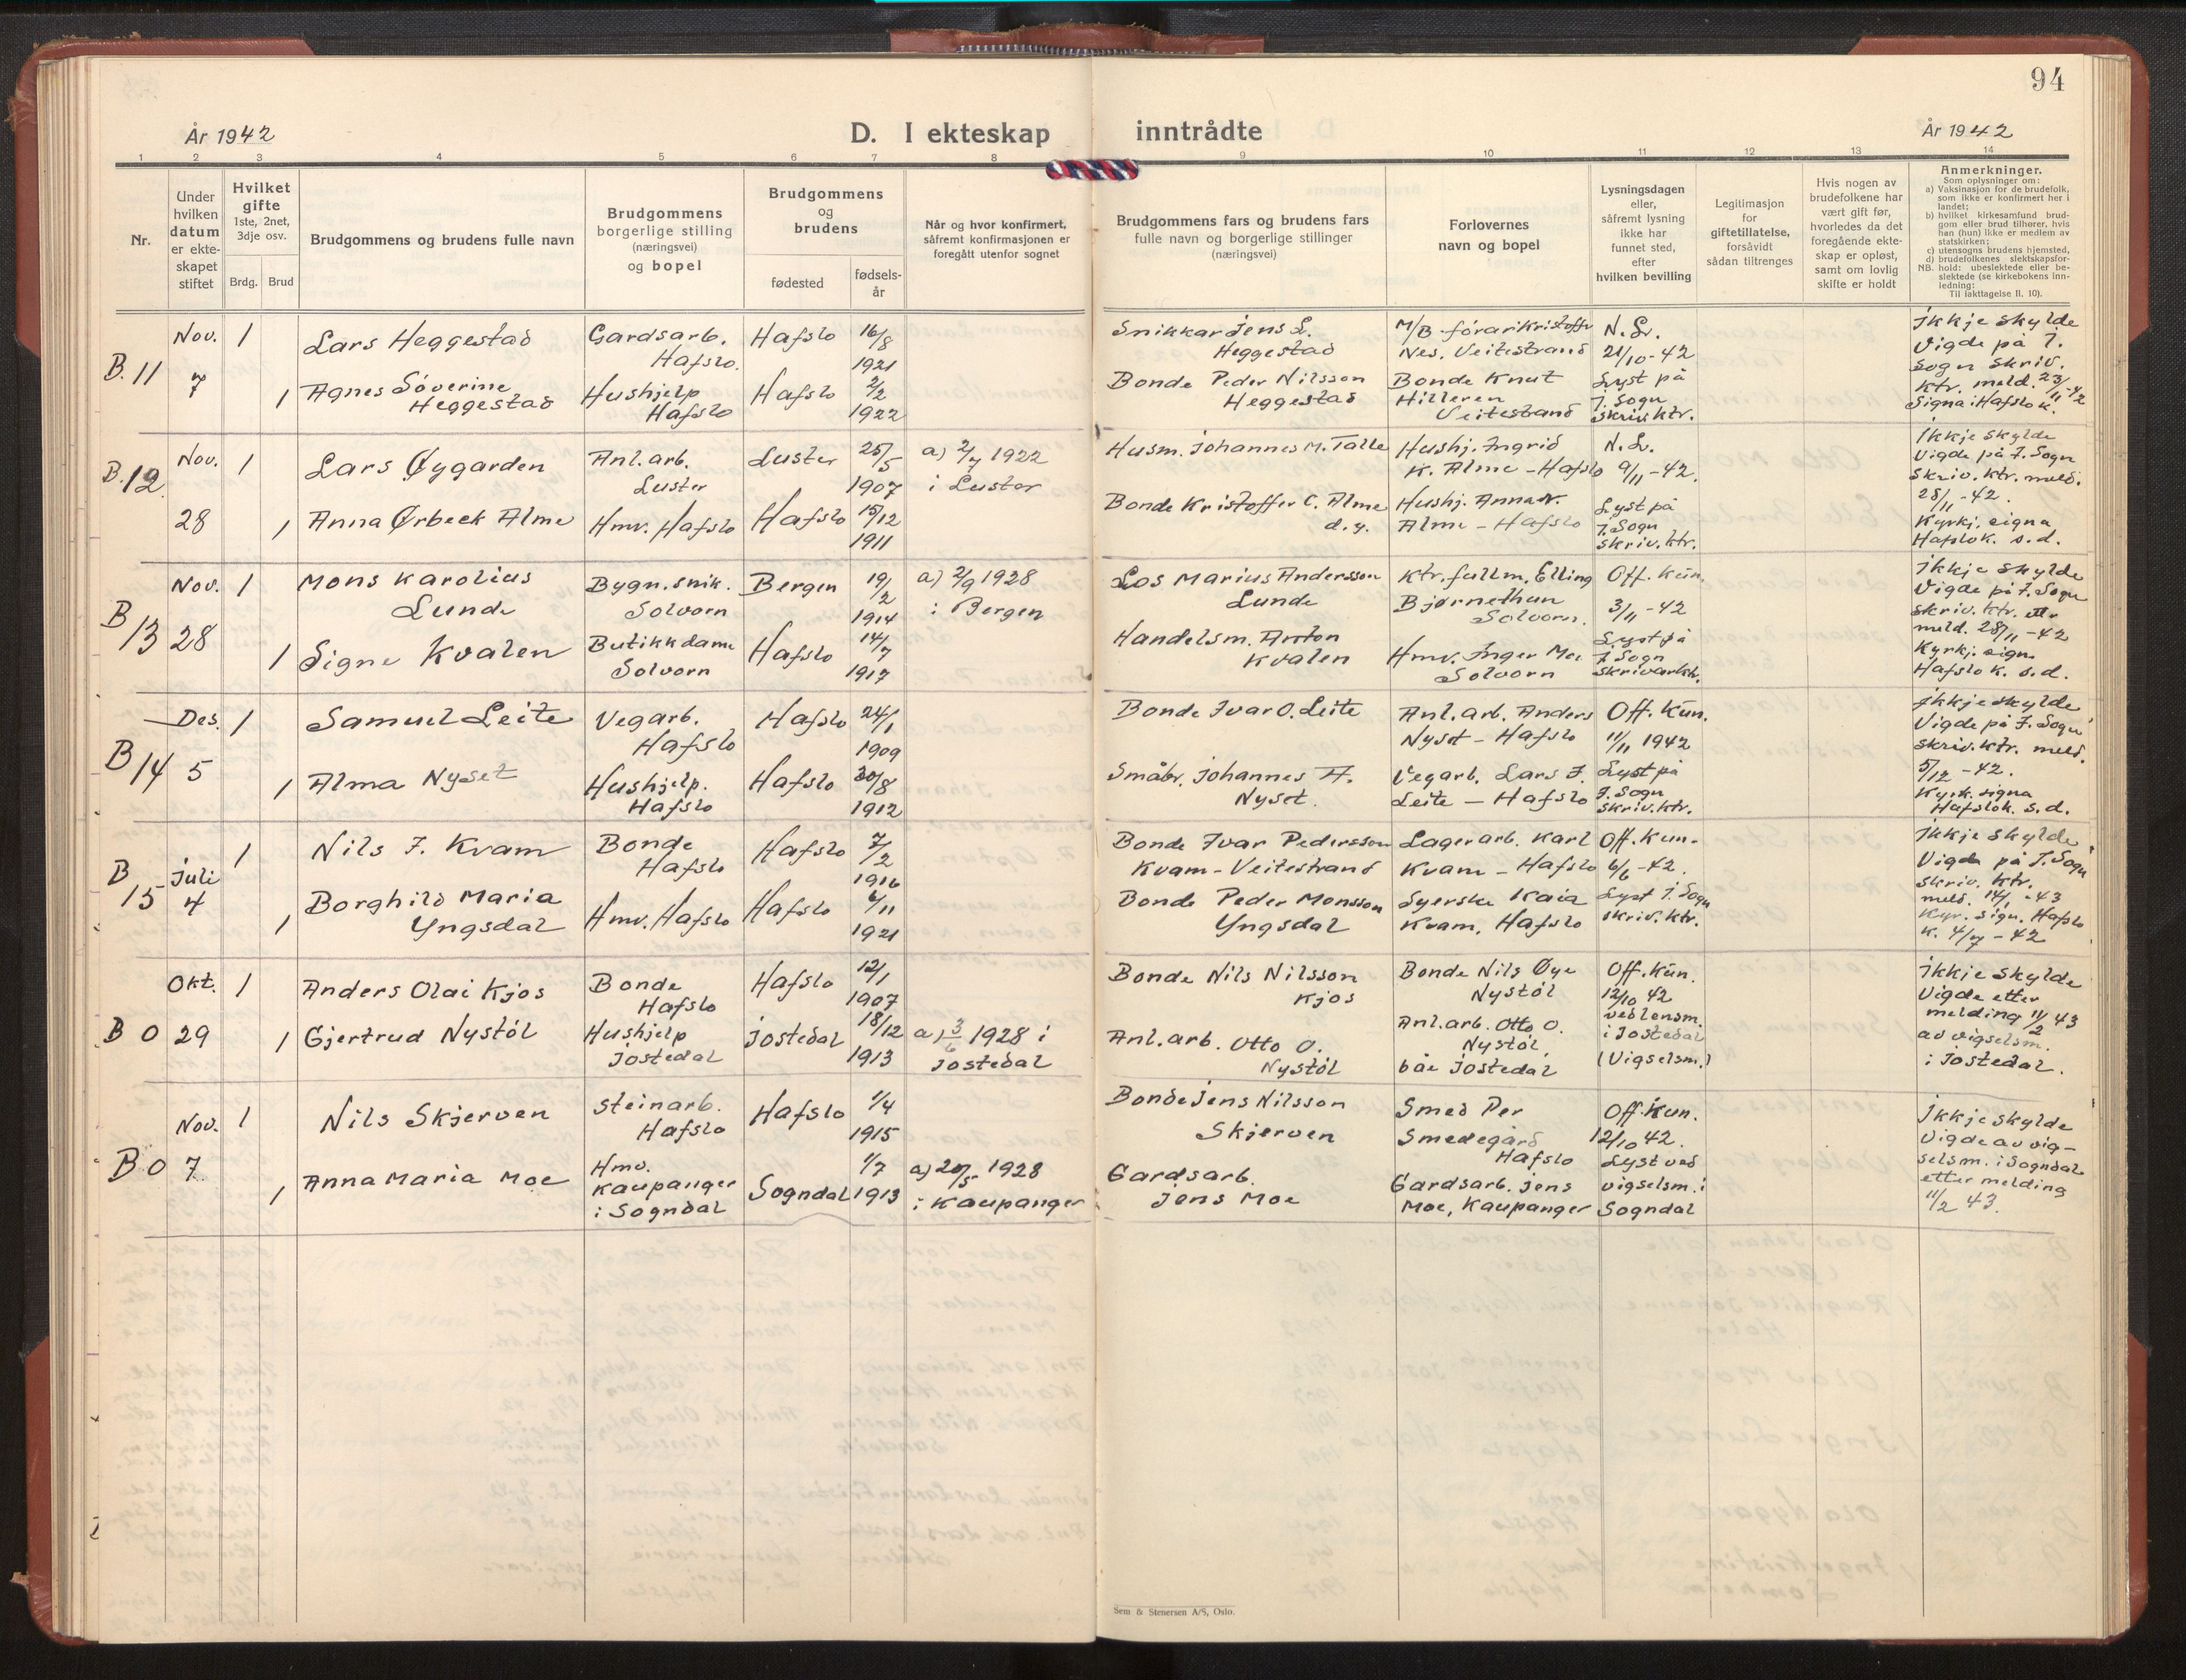 94
År 1942
D. I ekteskap inntrådte
År 1942
1 2 3 4 5 6 7 8 9 10 11 12 13 14
Nr.
Under hvilken datum er ekteskapet stiftet
Hvilket gifte
1ste, 2net, 3dje osv.
Brdg. Brud
Brudgommens og brudens fulle navn
Brudgommens borgerlige stilling (næringsvei) og bopel
Brudgommens og brudens
fødested
fødselsår
Når og hvor konfirmert, såfremt konfirmasjonen er foregått utenfor sognet
Brudgommens fars og brudens fars fulle navn og borgerlige stillinger (næringsvei)
Forlovernes navn og bopel
Lysningsdagen eller, såfremt lysning ikke har funnet sted, efter hvilken bevilling
Legitimasjon for giftetillatelse, forsåvidt sådan tiltrenges
Hvis nogen av brudefolkene har vært gift før, hvorledes da det foregående ekteskap er opløst, samt om lovlig skifte er holdt
Anmerkninger.
Som oplysninger om:
a) Vaksinasjon for de brudefolk, som ikke er konfirmert her i landet;
b) hvilket kirkesamfund brudgom eller brud tilhører, hvis han (hun) ikke er medlem av statskirken;
c) utensogns brudens hjemsted,
d) brudefolkenes slektskapsforhold: ubeslektede eller beslektede (se kirkebokens innledning:
NB. Til iakttagelse II. 10).
B. 11
Nov. 7
1
Lars Heggestad
Gardsarb.
Hafslo.
Hafslo
16/8
1921
Snikkar Jens L.
Heggestad
M/B-förar Kristoffer
Nes. Veitestrand
N. L.
21/10-42
Ikkje skylde
Vigde på I.
Sogn skriv.
ktr. meld. 23/11-42
Signa i Hafslo k.
1
Agnes Söverine
Heggestad
Hushjelp
Hafslo
Hafslo
2/2
1922
Bonde Peder Nilsson
Heggestad
Bonde Knut
Hilleren
Veitestrand
Lyst på
I. Sogn
skriv.ktr.
B. 12
Nov. 28
1
Lars Øygarden
Anl. arb.
Luster
Luster
25/5
1907
a) 2/7 1922
i Luster
Husm. Johannes M. Talle
Hushj. Ingrid
K. Alme - Hafslo
N. L.
9/11-42.
Ikkje skylde
Vigde på I. Sogn
Skriv. ktr. meld.
28/11-42.
Kyrkj. signa
Hafslo k. s.d.
1
Anna Ørbeck Alme
Hmv. Hafslo
Hafslo
15/12
1911
Bonde Kristoffer C. Alme
d.y.
Hushj. Anna N.
Alme - Hafslo
Lyst på
I. Sogn
skriv. ktr.
B 13
Nov. 28
1
Mons Karolius
Lunde
Bygn. snik.
Solvorn
Bergen
19/2
1914
a) 2/9 1928
i Bergen
Los Marius Andersson
Lunde
Ktr. fullm. Elling
Bjørnethun
Solvorn.
Off. Kun.
3/11-42
Ikkje skylde
Vigde på I. Sogn
skriv. ktr. ettr
meld. 28/11-42
Kyrkj. sign.
Hafslo k. s.d.
1
Signe Kvalen
Butikkdame
Solvorn
Hafslo
14/7
1917
Handelsm. Anton
Kvalen
Hmv. Inger Moe
Solvorn
Lyst på
I. Sogn
skrivarktr.
B 14
Des. 5
1
Samuel Leite
Vegarb.
Hafslo
Hafslo
24/1
1909
Bonde Ivar O. Leite
Anl. arb. Anders
Nyset - Hafslo
Off. Kun.
11/11 1942
Ikkje skylde
Vigde på I. Sogn
skriv. ktr. meld.
5/12-42.
Kyrk. signa
Hafslo k. s.d.
1
Alma Nyset
Hushjelp.
Hafslo
Hafslo
30/8
1912
Småbr. Johannes A.
Nyset.
Vegarb. Lars I.
Leite - Hafslo
Lyst på
I. Sogn
skriv. ktr.
B 15
Juli 4
1
Nils I. Kvam
Bonde
Hafslo
Hafslo
7/2
1916
Bonde Ivar Pedersson
Kvam - Veitestrand
Lagerarb. Karl
Kvam - Hafslo
Off. Kun.
6/6-42.
Ikkje skylde
Vigde på I. Sogn
skriv. ktr.
meld. 14/1-43
Kyr. sign. Hafslo
k. 4/7-42
1
Borghild Maria
Yngsdal
Hmv. Hafslo
Hafslo
6/11
1921
Bonde Peder Monsson
Yngsdal
Syerske Kaia
Kvam, Hafslo
Lyst I. Sogn
skriv. ktr.
B 0
Okt. 29
1
Anders Olai Kjos
Bonde
Hafslo
Hafslo
12/1
1907
Bonde Nils Nilsson
Kjos
Bonde Nils Øye
Nystöl
Off. Kun.
12/10 42
ved lensm.
i Jostedal
(Vigselsm.)
Ikkje skylde
Vigde etter
melding 11/2 43
av vigselsm.
i Jostedal.
1
Gjertrud Nystöl
Hushjelp
Jostedal
Jostedal
18/12
1913
a) 3/6 1928 i
Jostedal
Anl. arb. Otto O.
Nystöl
Anl. arb. Otto O.
Nystöl,
båe Jostedal
B 0
Nov. 7
1
Nils Skjerven
Steinarb.
Hafslo
Hafslo
1/4
1915
Bonde Jens Nilsson
Skjerven
Smed Per
Smedegård
Hafslo
Off. Kun.
12/10 42.
Ikkje skylde
Vigde av vig-
selsm. i Sogndal
etter melding
11/2 43.
1
Anna Maria Moe
Hmv.
Kaupanger
i Sogndal
Sogndal
1/7
1913
a) 20/5 1928
i Kaupanger
Gardsarb.
Jens Moe
Gardsarb. Jens
Moe, Kaupanger
Lyst ved
vigselsm. i
Sogndal
Sem & Stenersen A/S, Oslo.